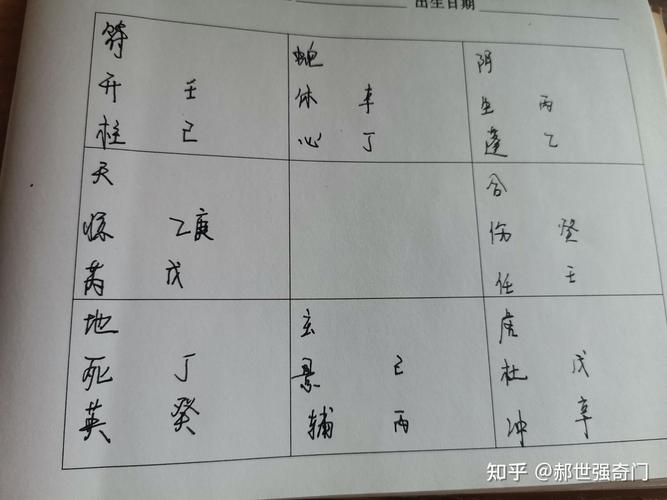 出生日期
符
开 壬
柱 己
蛇
休 辛
心 丁
阴
生 丙
蓬 乙
天
惊 乙庚
芮 戊
合
伤 癸
任 壬
地
死 丁
英 癸
玄
景 己
辅 丙
虎
杜 戊
冲 辛
知乎 @郝世强奇门